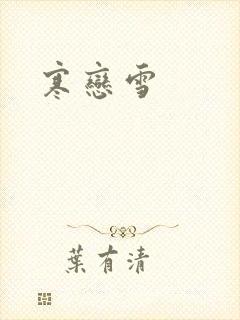 寒戀雪
葉有清